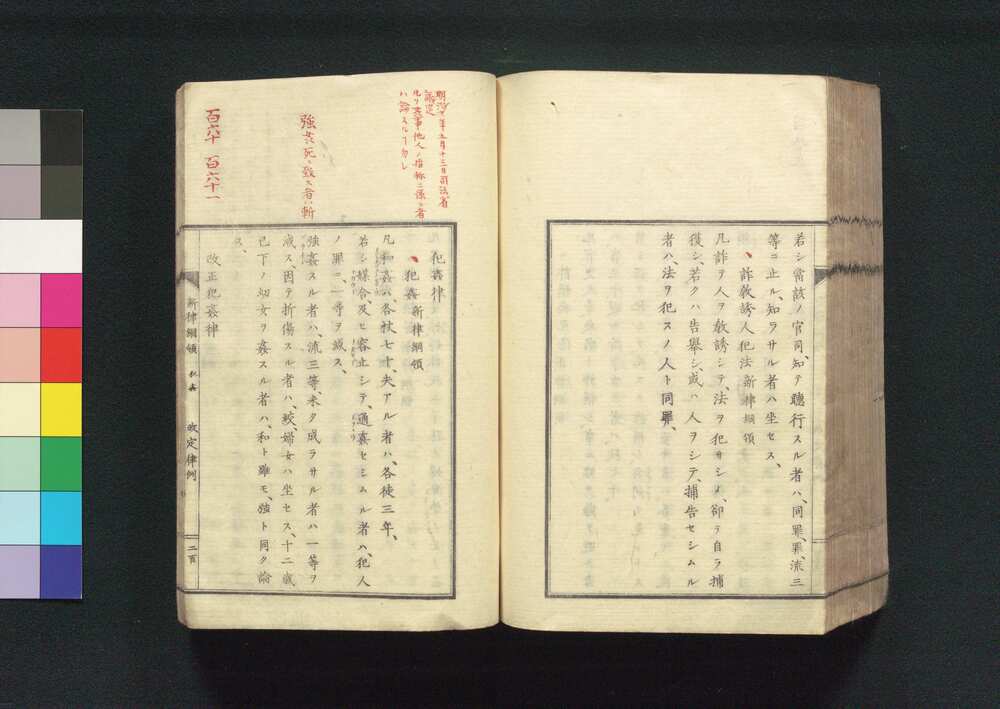 若シ當該ノ官司、知テ聽行スル者ハ、同罪、罪、流三
等ニ止ル、知ラサル者ハ坐セス、
詐教誘人犯法 新律綱領
凡詐テ人ヲ教誘シテ、法ヲ犯サシメ、卻テ自ラ捕
獲シ、若クハ告擧シ、或ハ人ヲシテ、捕告セシムル
者ハ、法ヲ犯スノ人ト同罪、
明治
年五月十三日司法省
ハ論スルコト勿レ
犯姦律
犯姦 新律綱領
凡和姦ハ、各杖七十、夫アル者ハ、各徒三年、
若シ媒合、及ヒ容止シテ、通姦セシムル者ハ、犯人
ノ罪ニ、一等ヲ減ス、
強姦死ニ致ス者ハ斬
強姦スル者ハ、流三等、未タ成ラサル者ハ一等ヲ
減ス、因テ折傷スル者ハ、絞、婦女ハ坐セス、十二歳
已下ノ幼女ヲ姦スル者ハ、和ト雖モ、強ト同ク論
ス、
百六十 百六十一
改正犯姦律
新律綱領 犯姦 改定律例 二百